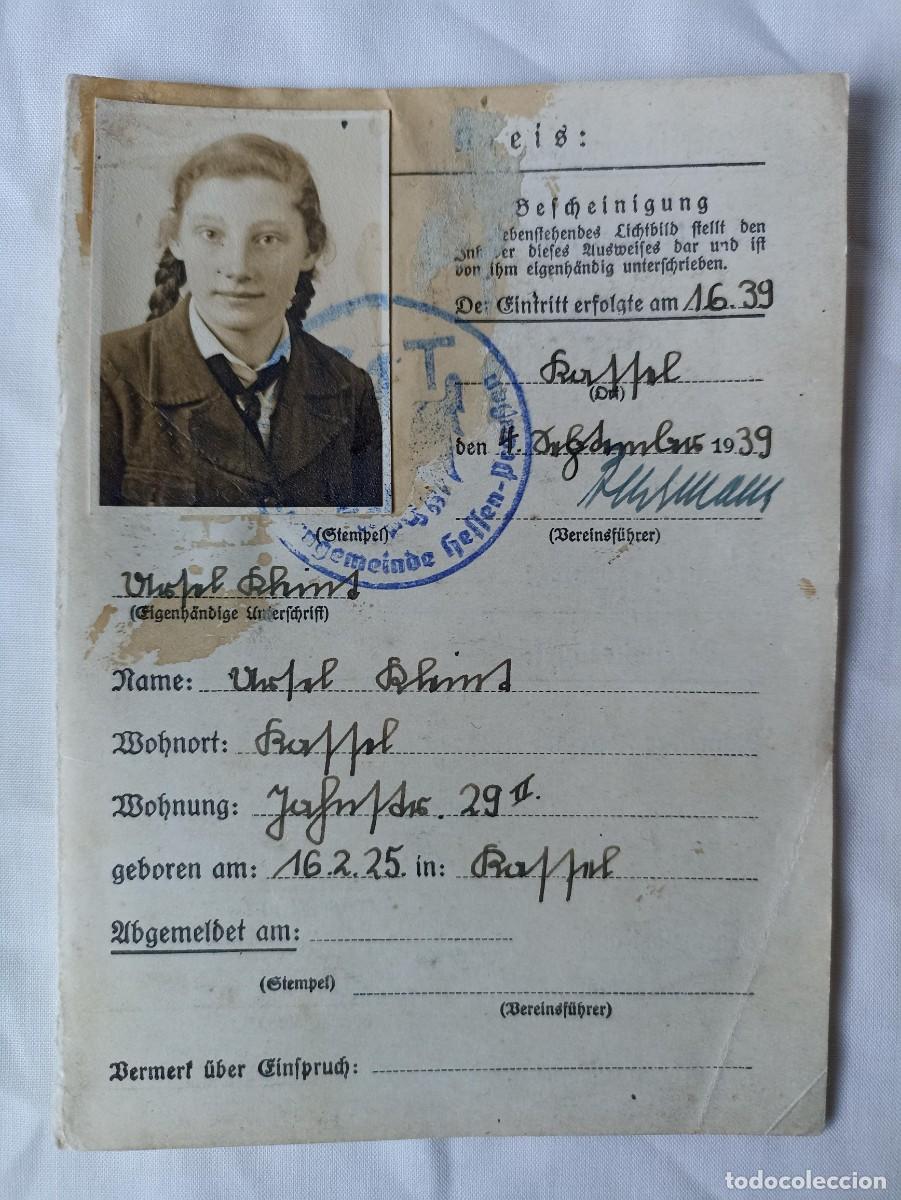 eis:
Bescheinigung
ebenstehendes Lichtbild stellt den
dieses Ausweises dar und ist
von ihm eigenhändig unterschrieben.
Eintritt erfolgte am 16.39
Kassel
(Ort)
den 4. September 1939
(Stempel)
(Vereinsführer)
gemeinde Hessen-
Ursel Kleint
(Eigenhändige Unterschrift)
Name: Ursel Kleint
Wohnort: Kassel
Wohnung: Jahnstr. 29 II.
geboren am: 16.2.25. in: Kassel
Abgemeldet am:
(Stempel)
(Vereinsführer)
Vermerk über Einspruch:
todocoleccion